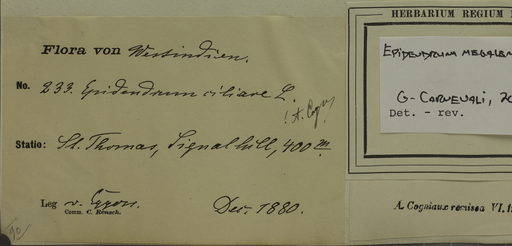 Flora von Westindien.
No. 233. Epidendrum ciliare L.
! A. Cogn
Statio: St. Thomas, Signal hill, 400 m
Leg v. Eggers.
Comm. C. Rensch.
Dec. 1880.
HERBARIUM REGIUM
EPIDENDRUM
G. CARNEVALI, 20
Det. - rev.
A. Cogniaux revisea VI.1